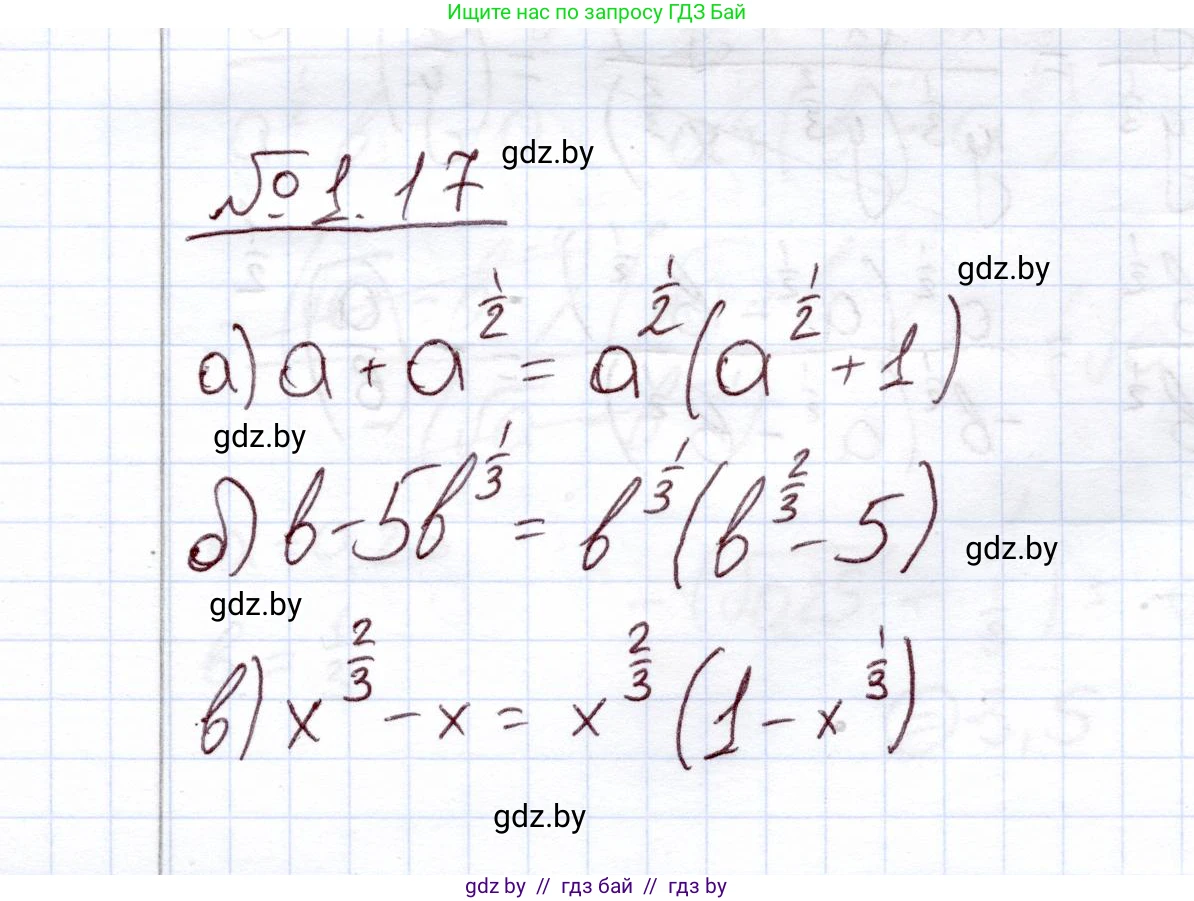 Ищите нас по запросу ГДЗ Бай
№ 1.17
gdz.by
gdz.by
а) a + a^{1/2} = a^{1/2} (a^{1/2} + 1)
gdz.by
б) b - 5b^{1/3} = b^{1/3} (b^{2/3} - 5)
gdz.by
gdz.by
в) x^{2/3} - x = x^{2/3} (1 - x^{1/3})
gdz.by
gdz by // гдз бай // гдз by